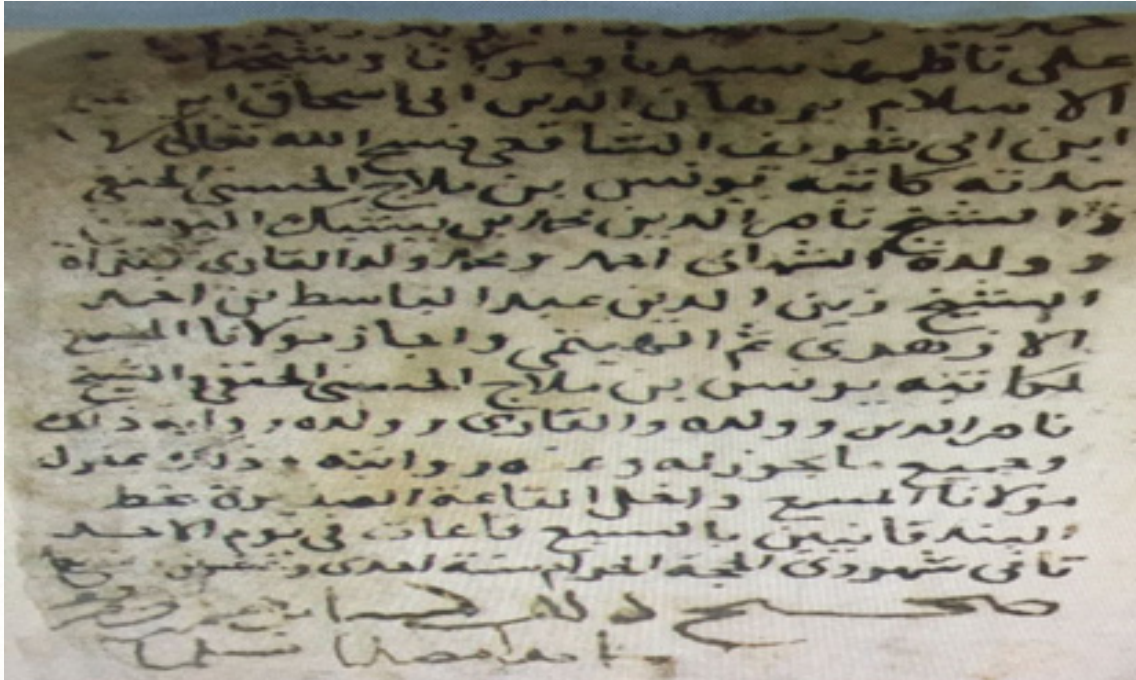 على ناظمها سيدنا ومولانا وشيخنا
الاسلام برهان الدين ابي اسحاق
ابن ابي شريف الشافعي فسح الله تعالى
مدته كاتبه يونس بن ملاج الحسني الحنفي
والشيخ ناصر الدين محمد بن
وولده الشهابي احمد ومحمد ولد القارى بقراة
الشيخ زين الدين عبد الباسط بن احمد
الازهرى ثم الهيثمي واجاز مولانا المسمع
لكاتبه يونس بن ملاج الحسني الحنفي والشيخ
ناصر الدين وولده والقارى وولده رواية ذلك
وجميع ما يجوز له وعنه روايته وذلك بمنزل
مولانا المسمع داخل القاعة الصغيرة بخط
البندقانيين بالسبع قاعات في يوم الاحد
ثاني شهر ذى الحجة الحرام سنة احدى
صحيح ذلك